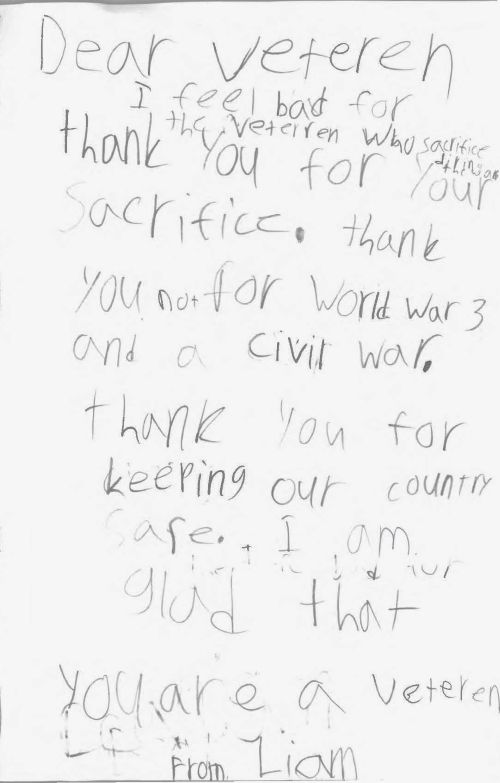 Dear Veteren
I feel bad for
the Veterren who sacrifice
things
thank you for your
Sacrifice. thank
you not for World War 3
and a civil war.
thank you for
keeping our country
Safe. I am
glad that
you are a Veteren
From Liam